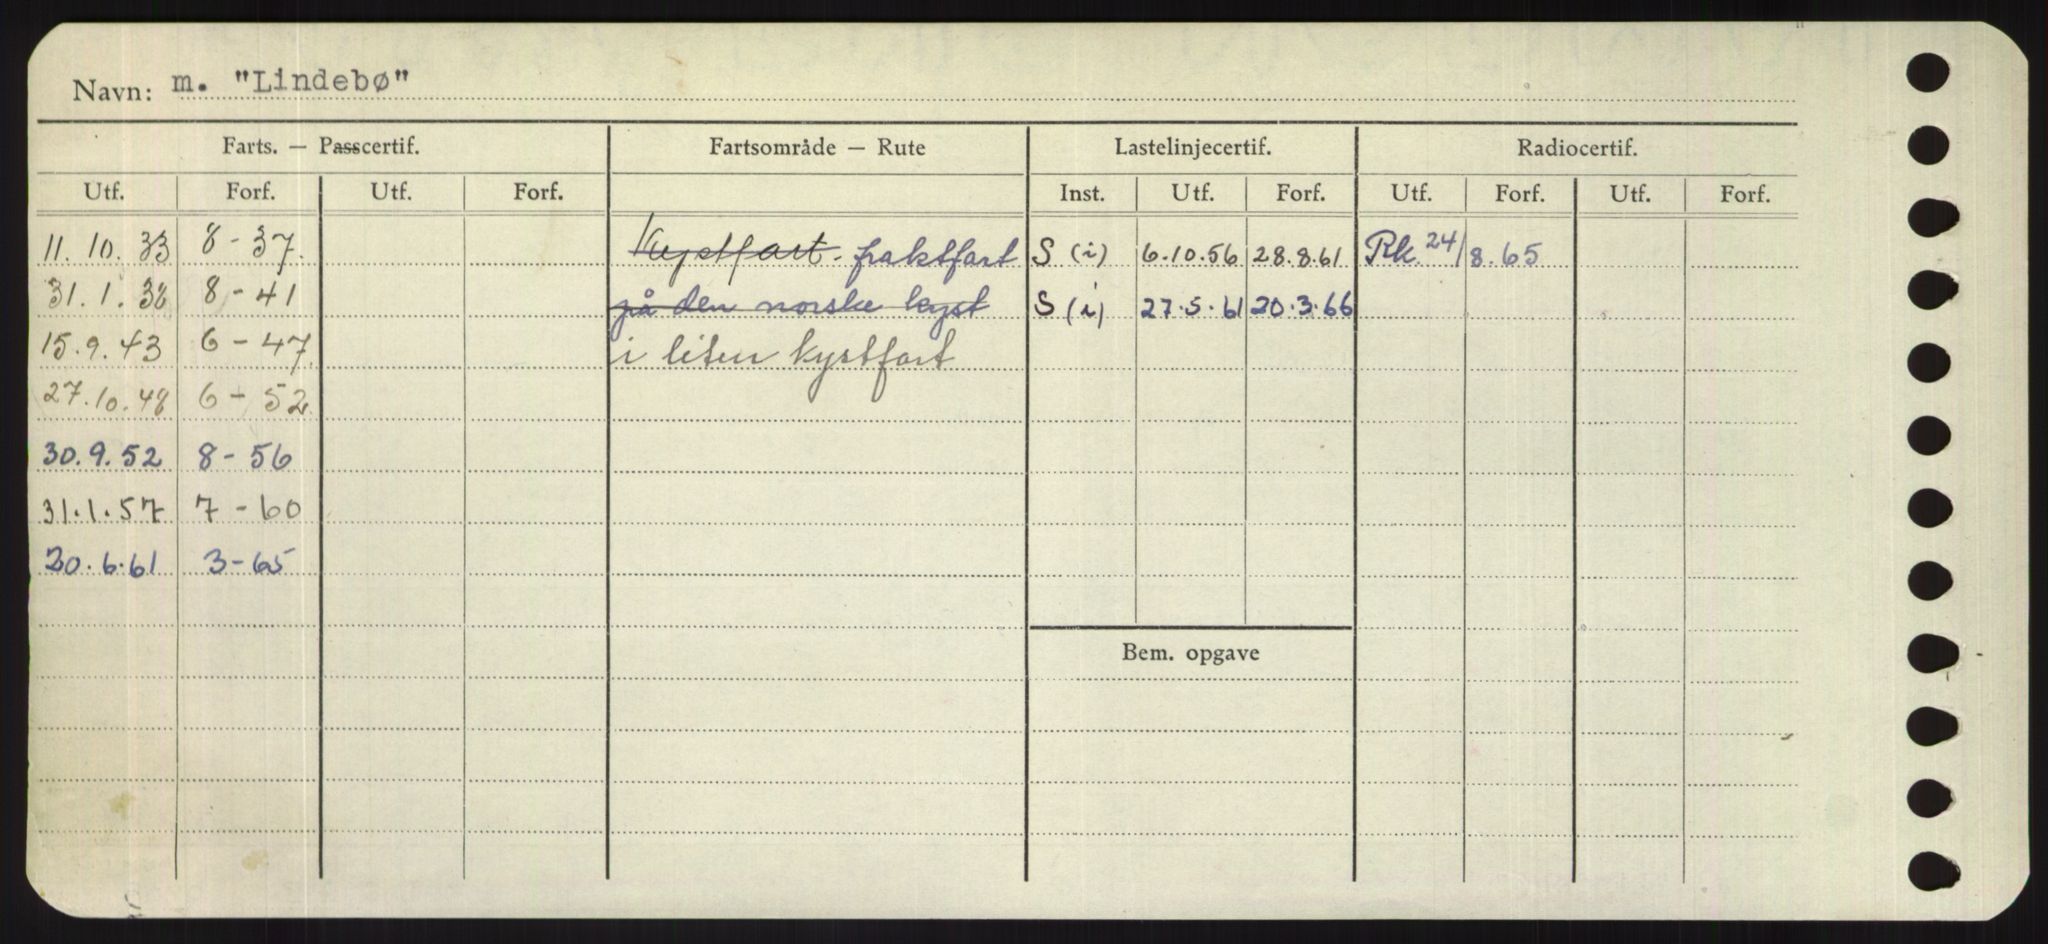 Navn: m. "Lindebø"
Farts. — Passcertif. Fartsområde — Rute Lastelinjecertif. Radiocertif.
Utf. Forf. Utf. Forf. Inst. Utf. Forf. Utf. Forf. Utf. Forf.
11. 10. 33 8 - 37. Kystfart - fraktfart S (i) 6.10.56 28.8.61 Rk. 24/8.65
31. 1. 38 8 - 41 på den norske kyst S (i) 27.5.61 20.3.66
15. 9. 43 6 - 47. i liten kystfart
27. 10. 48 6 - 52.
30. 9. 52 8 - 56
31. 1. 57 7 - 60
20. 6. 61 3 - 65
Bem. opgave